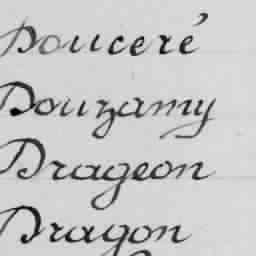 Douceré
Douzamy
Drageon
Dragon